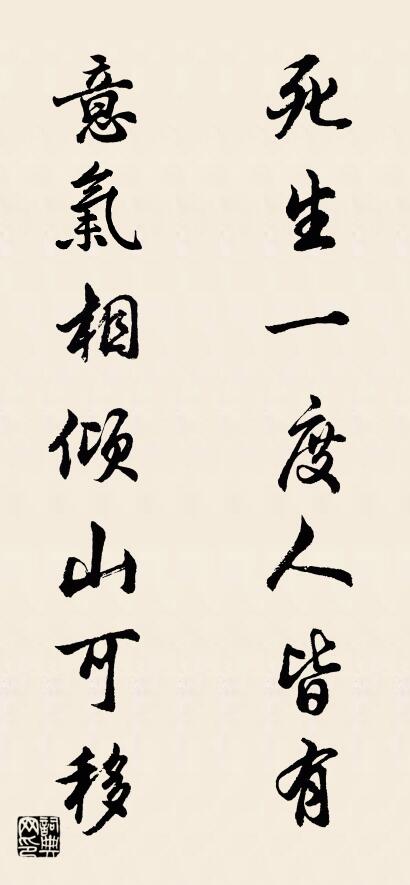 死生一度人皆有
意氣相傾山可移
詞典网印